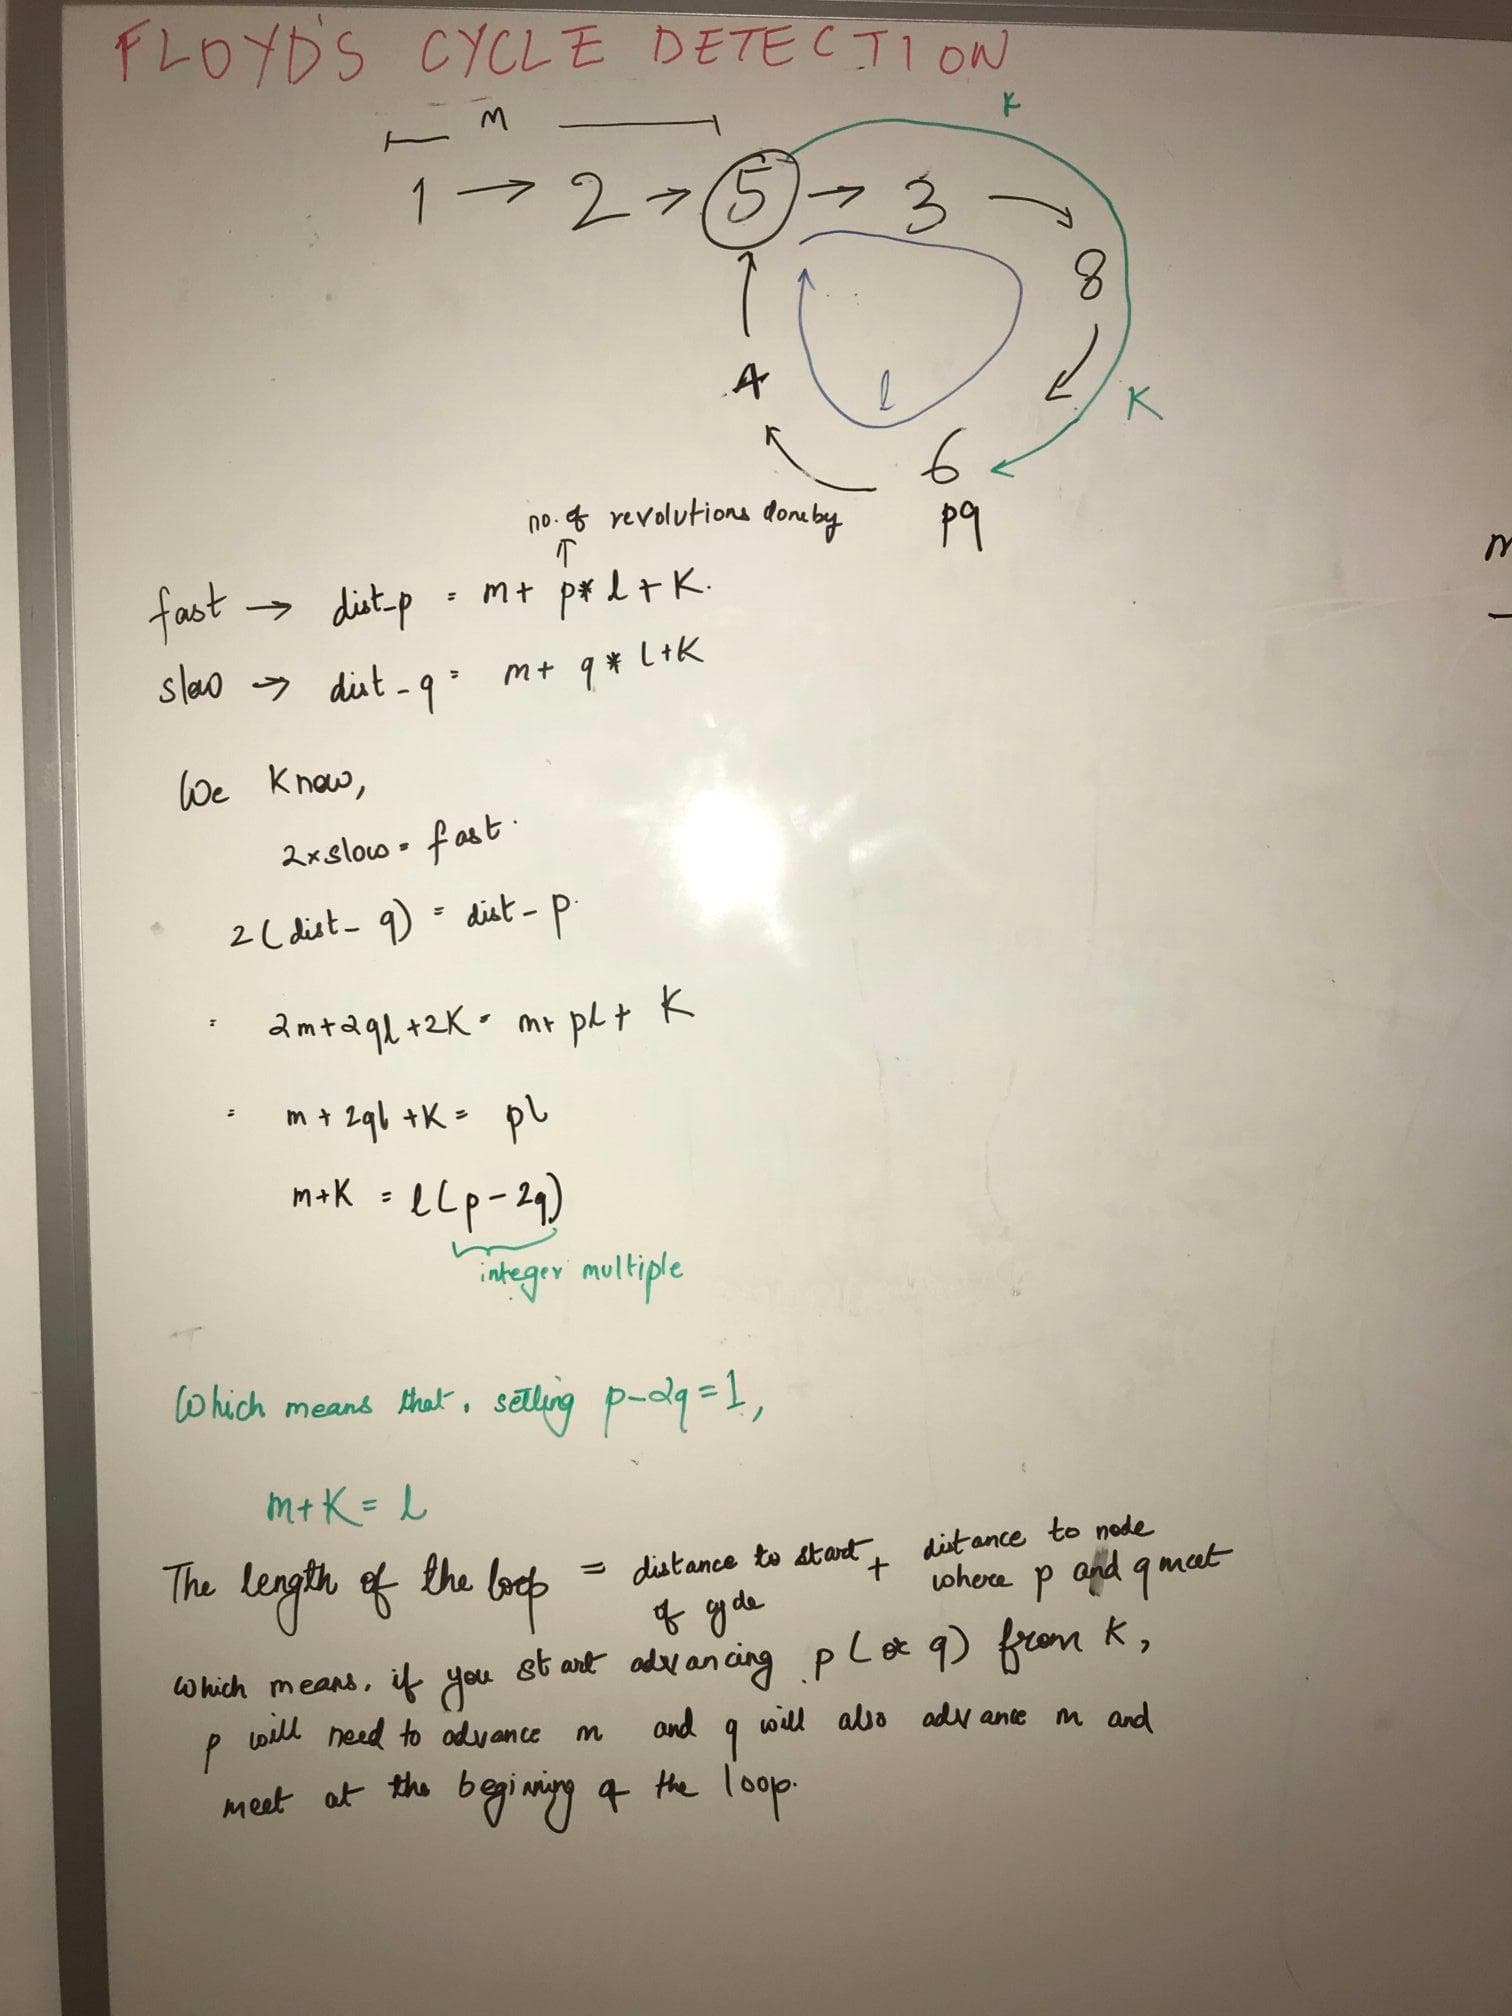 FLOYD'S CYCLE DETECTION
m
K
1 → 2 → 5 → 3
8
4
l
K
6
no. of revolutions done by
pq
↑
fast → dist_p = m + p * l + K.
slow → dist - q = m + q * l + K
We Know,
2 x slow = fast.
2 ( dist - q) = dist - p.
= 2m + 2ql + 2K = m + pl + K
= m + 2ql + K = pl
m + K = l (p - 2q)
integer multiple
Which means that, setting p - 2q = 1,
m + K = l
The length of the loop = distance to start + distance to node
of cycle where p and q meet
which means, if you start advancing p (or q) from K,
p will need to advance m and q will also advance m and
meet at the begining of the loop.